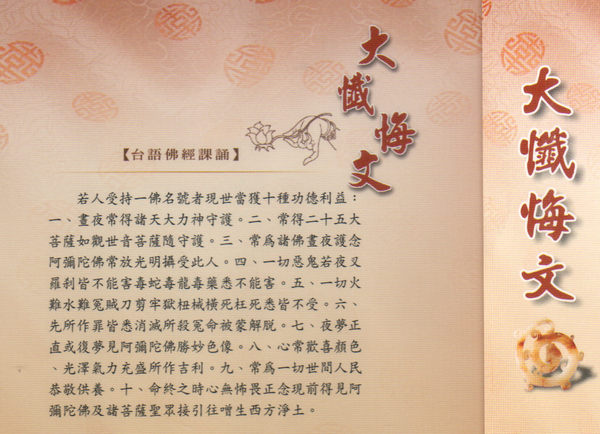 大懺悔文
【台語佛經課誦】
若人受持一佛名號者現世當獲十種功德利益：
一、晝夜常得諸天大力神守護。二、常得二十五大
菩薩如觀世音菩薩隨守護。三、常爲諸佛晝夜護念
阿彌陀佛常放光明攝受此人。四、一切惡鬼若夜叉
羅剎皆不能害毒蛇毒龍毒藥悉不能害。五、一切火
難水難冤賊刀剪牢獄杻械橫死枉死悉皆不受。六、
先所作罪皆悉消滅所殺冤命被蒙解脫。七、夜夢正
直或復夢見阿彌陀佛勝妙色像。八、心常歡喜顏色
、光澤氣力充盛所作吉利。九、常爲一切世間人民
恭敬供養。十、命終之時心無怖畏正念現前得見阿
彌陀佛及諸菩薩聖眾接引往噌生西方淨土。
大懺悔文